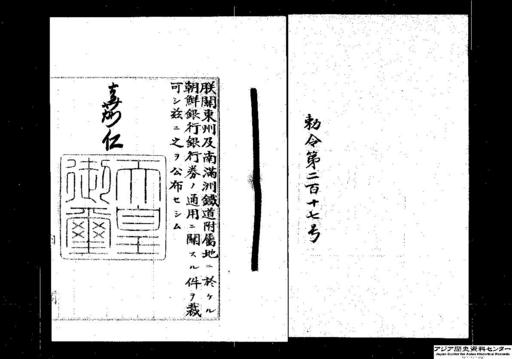 勅令第二百十七号
朕關東州及南滿洲鐵道附屬地ニ於ケル
朝鮮銀行銀行券ノ通用ニ關スル件ヲ裁
可シ茲ニ之ヲ公布セシム
嘉仁
天皇
御璽
アジア歴史資料センター
Japan Center for Asian Historical Records